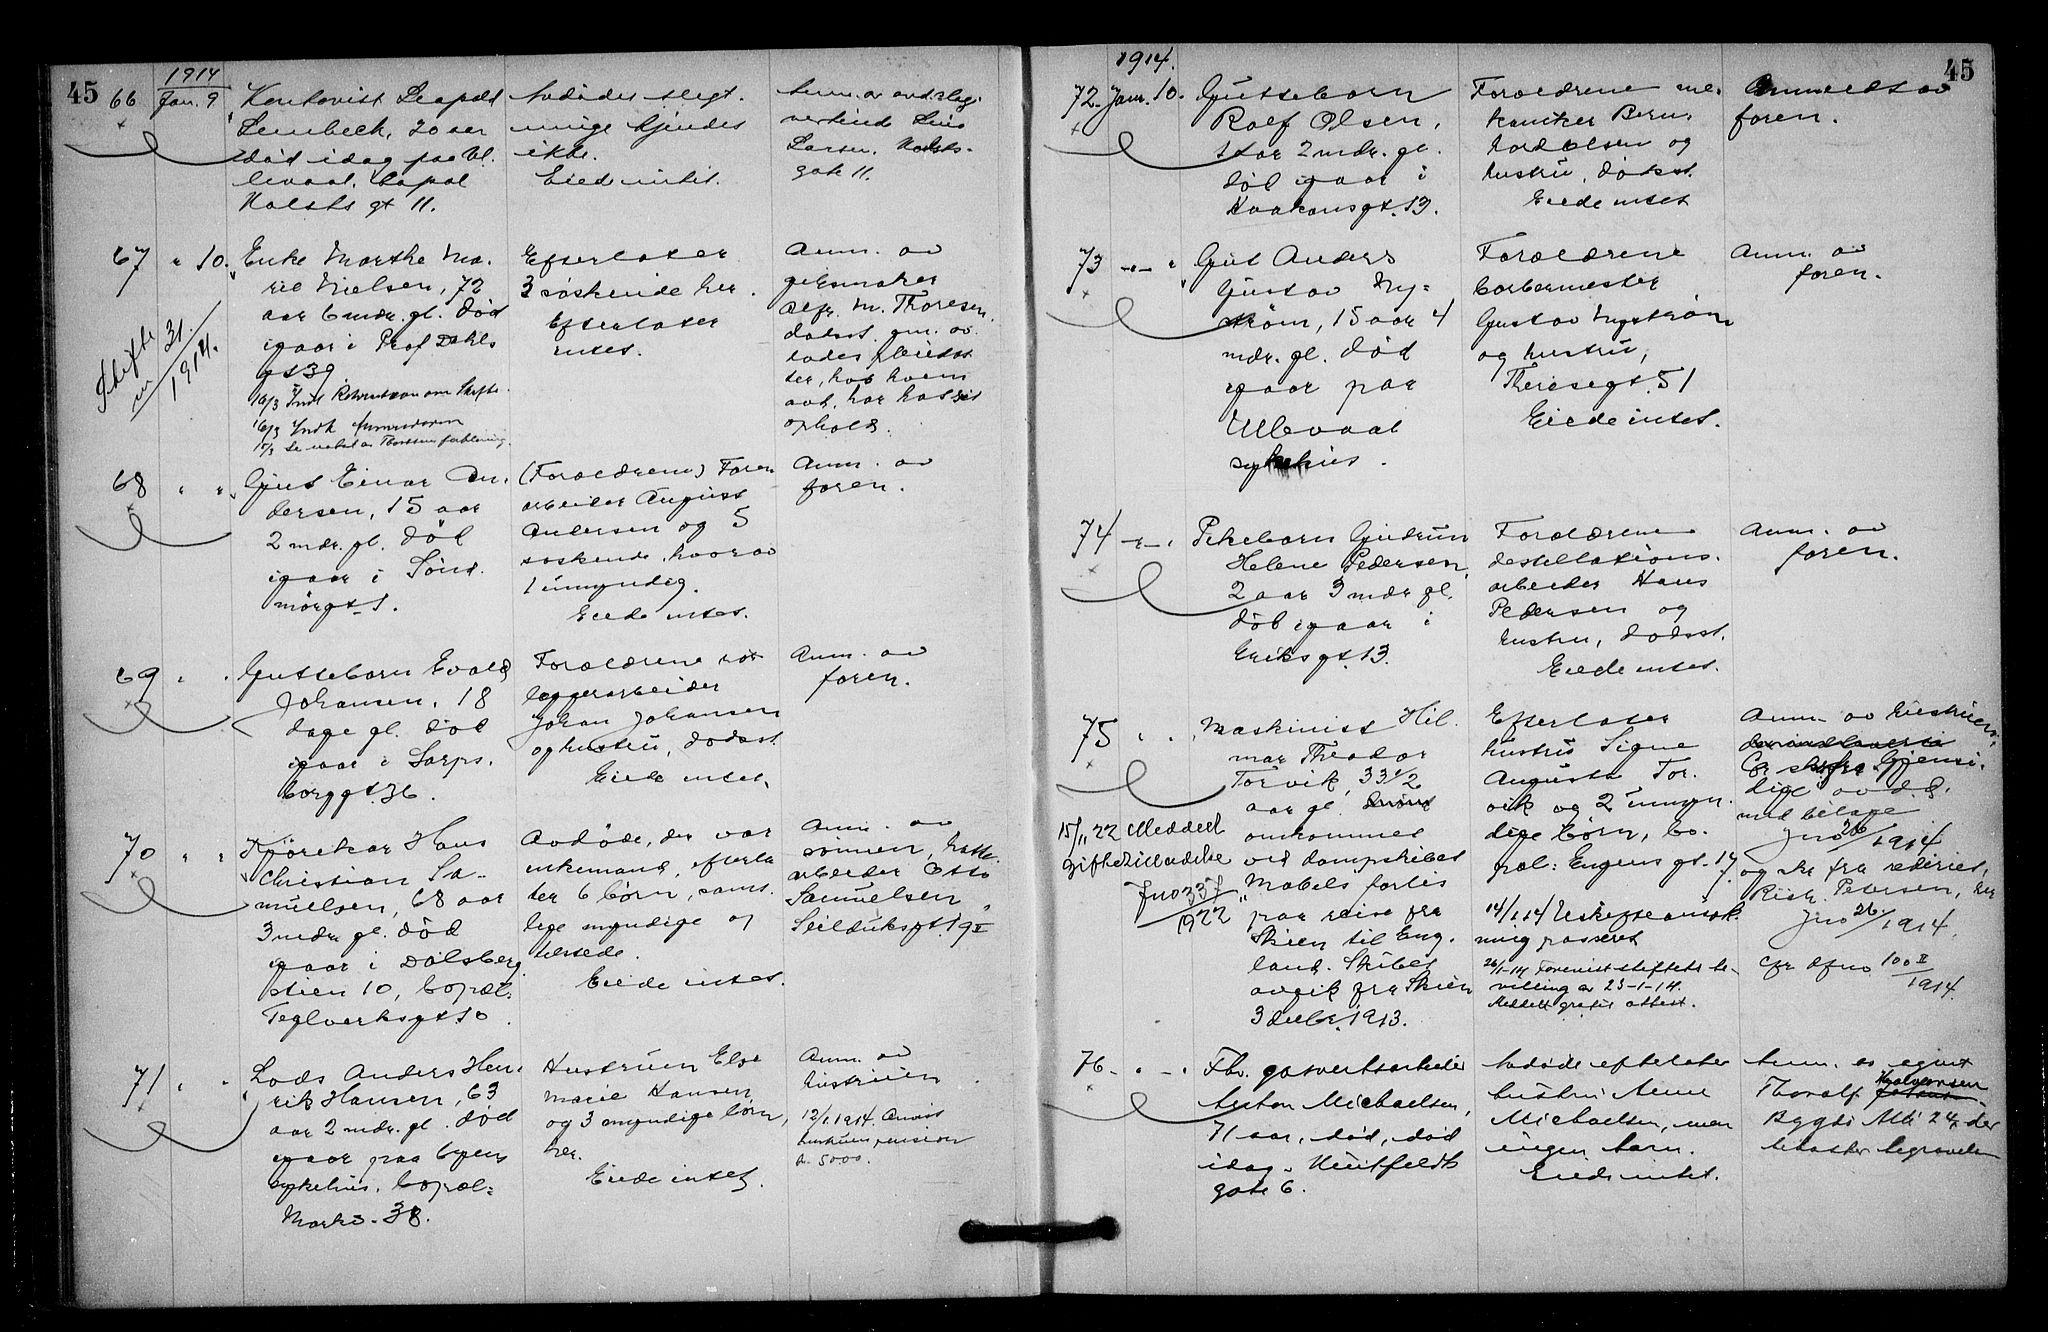 45
1914
66 Jan. 9
Leopold
Lembeck, 20 aar
død idag paa Ul-
levaal. Bopæl
Holsts gt 11.
Avdødes slegt.
ninge kjendes
ikke.
Eied intet.
Anm. av
vertinde
Larsen, Holsts-
gate 11.
67 " 10.
Enke Marthe Ma-
rie Nielsen, 72
aar 6 mdr. gl. død
igaar i Prof Dahls
gt 39
16/3
16/3
Skifte
31
1914.
Efterlater
3 søskende her.
Efterlater
intet.
Anm. av
gjørtmaker
Alfr. M. Thoresen,
dødsst.
ter, hos hvem
avd. har hat sit
ophold.
68 " "
Gut Einar An-
dersen, 15 aar
2 mdr. gl. død
igaar i Sønd-
mørgt 1.
(Forældrene) Faren
arbeider August
Andersen og 5
søskende, hvorav
1 umyndig.
Eiede intet.
Anm. av
faren.
69 " "
Guttebarn Evald
Johansen, 18
dage gl. død
igaar i Sarps-
borggt. 36.
Forældrene rør-
læggerarbeider
Johan Johansen
og hustru, dødsst.
Eiede intet.
Anm. av
faren.
70 " "
Kjørekar Hans
Christian Sa-
muelsen, 68 aar
3 mdr gl. død
igaar i Dælsberg
stien 10, bopæl:
Teglverksgt. 10.
Avdøde, der var
enkemand, efterla-
ter 6 børn, sam-
lige myndige og
tilstede.
Eiede intet.
Anm. av
sønnen,
arbeider Otto
Samuelsen,
Seilduksgt. 19 II
71 " "
Lods Anders Hen-
rik Hansen, 63
aar 2 mdr. gl. død
igaar paa byens
sykehus. Bopæl:
Markv. 38.
Hustruen Else
Marie Hansen
og 3 myndige børn,
her.
Eiede intet.
Anm. av
hustruen
12/1 1914. Anvist
hustruen pension
5000.
1914.
45
72. Jan. 10.
Guttebarn
Rolf Olsen,
1 aar 2 mdr. gl.
død igaar i
Haakonsgt. 13.
Forældrene me-
kaniker Bern-
hard Olsen og
hustru, dødsst.
Eiede intet
Anmeldt av
faren.
73 — " — "
Gut Anders
Gustav Ny-
strøm, 15 aar 4
mdr. gl. død
igaar paa
Ullevaal
sykehus.
Forældrene
barbermester
Gustav Nystrøm
og hustru,
Theresegt. 51
Eiede intet.
Anm. av
faren.
74 — " — "
Pikebarn Gudrun
Helene Pedersen,
2 aar 3 mdr gl.
død igaar i
Eriksgt. 13.
Forældrene
destillations-
arbeider Hans
Pedersen og
hustru, dødsst.
Eiede intet.
Anm. av
faren.
75 " "
Maskinist Hil-
mar Theodor
Torvik, 33 1/2
aar gl.
omkommet
ved dampskibet
"Mabels" forlis
paa reise fra
Skien til Eng-
land. Skibet
avgik fra Skien
3 decbr. 1913.
15/11 22 Meddelt
giftetilladelse
Jno 337
1922
Efterlater
hustru Signe
Augusta Tor-
vik og 2 umyn-
dige børn, bo-
pæl: Eugens gt. 17.
14/1 14
passeret
26/1-14 Forevist skiftets be-
villing av 23-1-14.
Meddelt gratis attest.
Anm. av hustruen,
med bilage
Jno 26/1914
og skr fra rederiet,
Rich. Petersen, her
Jno 26/1914
cfr dfno 100 II
1914.
76 — " — "
Fhv. gasverksarbeider
Anton Michaelsen,
71 aar, død, død
idag. Huitfeldts
gate 6.
Avdøde efterlater
hustru Anne
Michaelsen, men
ingen barn.
Eiede intet.
Anm. av agent
Thoralf Halvorsen
Bygdø Allé 24, der
bekoster begravelsen